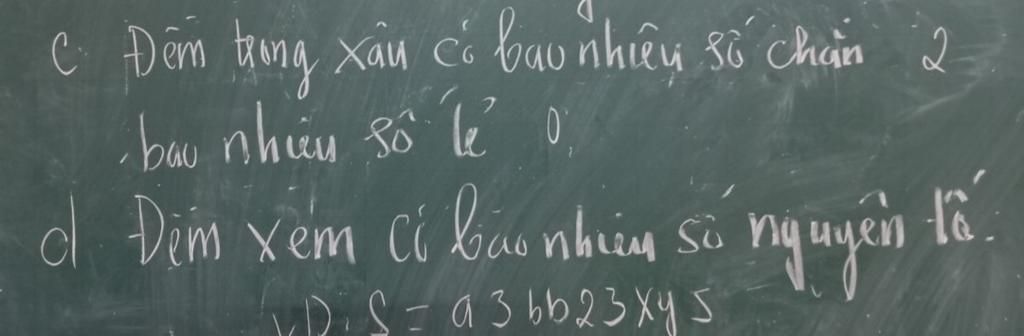 c. Đếm trong xâu có bao nhiêu số chẵn 2
bao nhiêu số lẻ 0
d Đếm xem có bao nhiêu số nguyên tố.
VD: S = a3bb23xy5